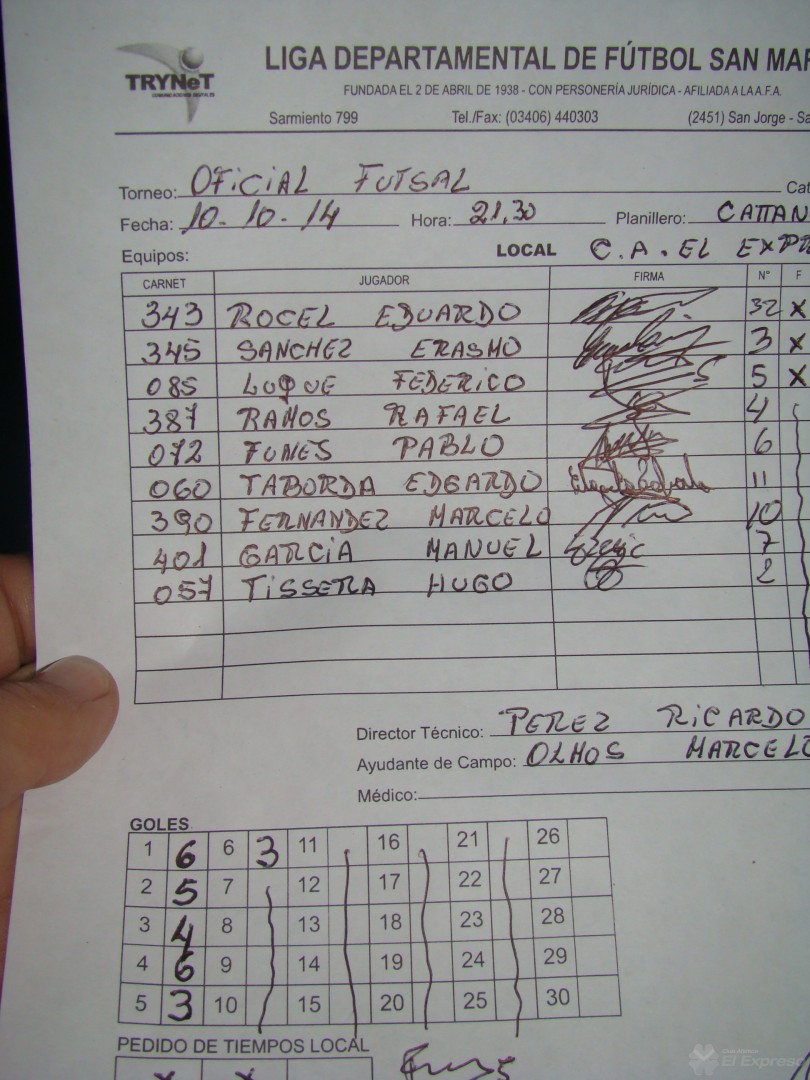 TRYNeT
COMUNICACIONES DIGITALES
LIGA DEPARTAMENTAL DE FÚTBOL SAN MAR
FUNDADA EL 2 DE ABRIL DE 1938 - CON PERSONERÍA JURÍDICA - AFILIADA A LA A.F.A.
Sarmiento 799 Tel./Fax: (03406) 440303 (2451) San Jorge - Sa
Torneo: OFiCiAL FUTSAL Cat
Fecha: 10-10-14 Hora: 21,30 Planillero: CATTAN
Equipos: LOCAL C.A. EL EXPR
CARNET JUGADOR FIRMA N° F
343 ROCEL EDUARDO 32 X
345 SANCHEZ ERASMO 3 X
085 LUQUE FEDERICO 5 X
387 RAMOS RAFAEL 4
072 FUNES PABLO 6
060 TABORDA EDGARDO 11
390 FERNANDEZ MARCELO 10
401 GARCiA MANUEL 7
057 TiSSERA HUGO 2
Director Técnico: PEREZ RiCARDO
Ayudante de Campo: OLMOS MARCELO
Médico:
GOLES
1 6 6 3 11 16 21 26
2 5 7 12 17 22 27
3 4 8 13 18 23 28
4 6 9 14 19 24 29
5 3 10 15 20 25 30
PEDIDO DE TIEMPOS LOCAL
X X
El Expreso